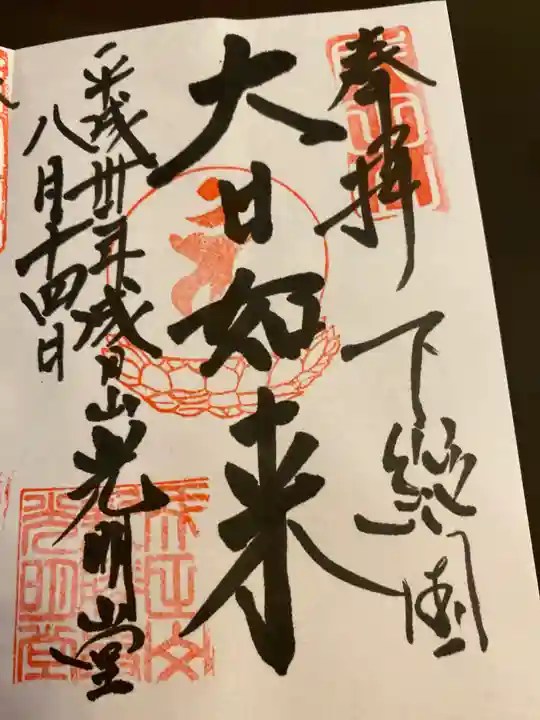 奉拝
下総国
大日如来
平成卅年
八月十四日
成田山光明堂